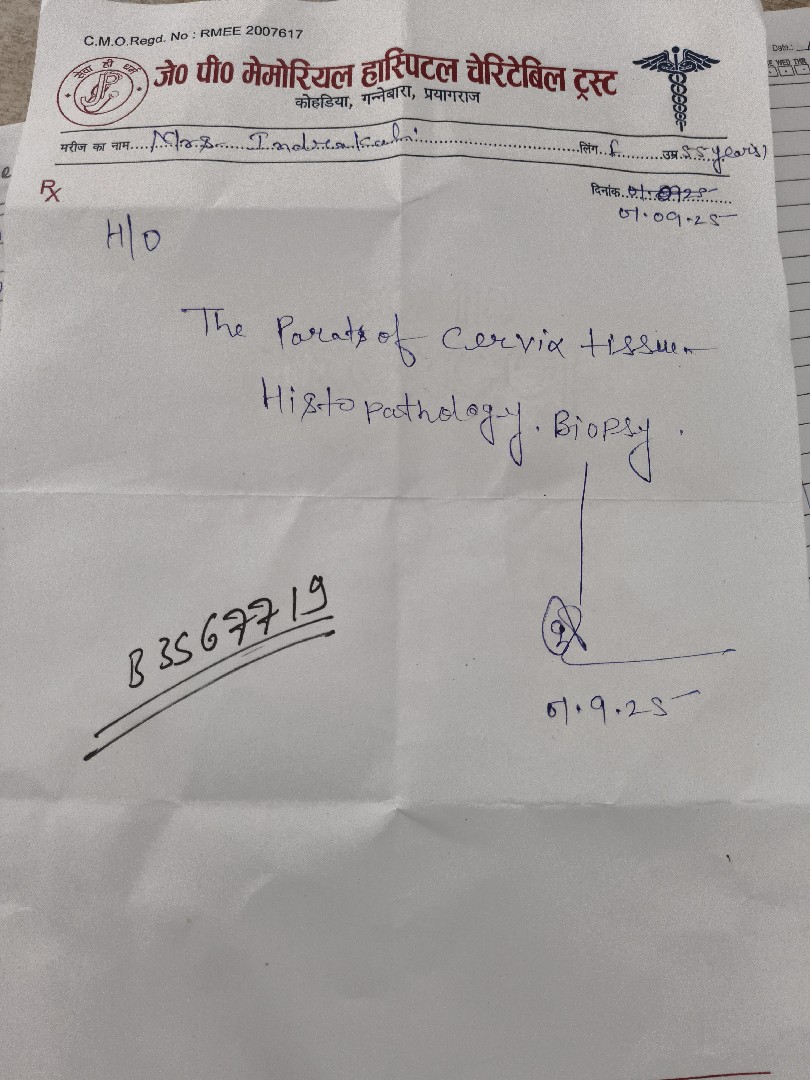 C.M.O.Regd. No : RMEE 2007617
सेवा ही धर्म
JP
जे० पी० मेमोरियल हास्पिटल चेरिटेबिल ट्रस्ट
कोहडिया, गन्नेबारा, प्रयागराज
मरीज का नाम....Mrs. Indrakali....लिंग..f....उम्र.55 years)
Rx
दिनांक..01.0925
01.09.25
H/O
The Parats of Cervix tissue
Histopathology. Biopsy.
B3567719
01.9.25
Date:
WED THR